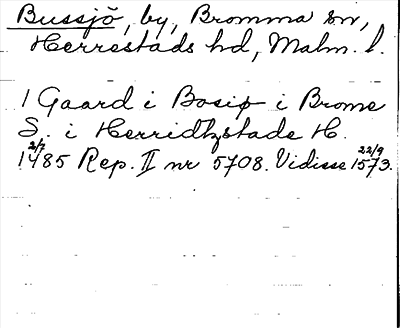 Bussjö, by, Bromma sn,
Herrestads hd, Malm. l.
1 Gaard i Bosiø i Brome
S. i Herridtzstade H.
2/7 1485 Rep. II nr 5708. Vidisse 22/9 1573.